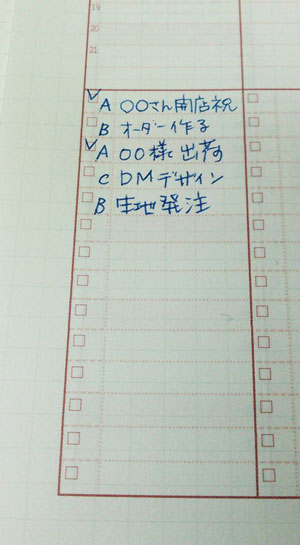 19
20
21
✓ A 〇〇さん開店祝
B オーダー作る
✓ A 〇〇様 出荷
C DMデザイン
B 生地発注